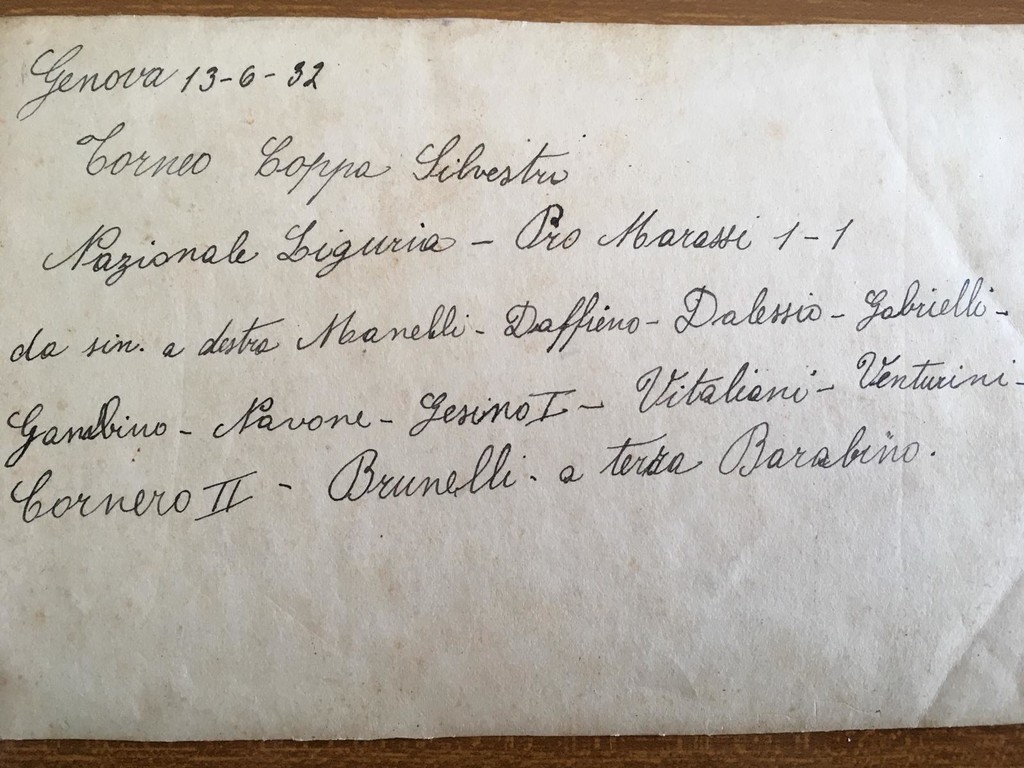 Genova 13-6-32
Torneo Coppa Silvestri
Nazionale Liguria - Pro Marassi 1-1
da sin. a destra Manelli - Daffieno - Dalessio - Gabrielli -
Gambino - Navone - Gesino I - Vitaliani - Venturini -
Cornero II - Brunelli. a terza Barabino.